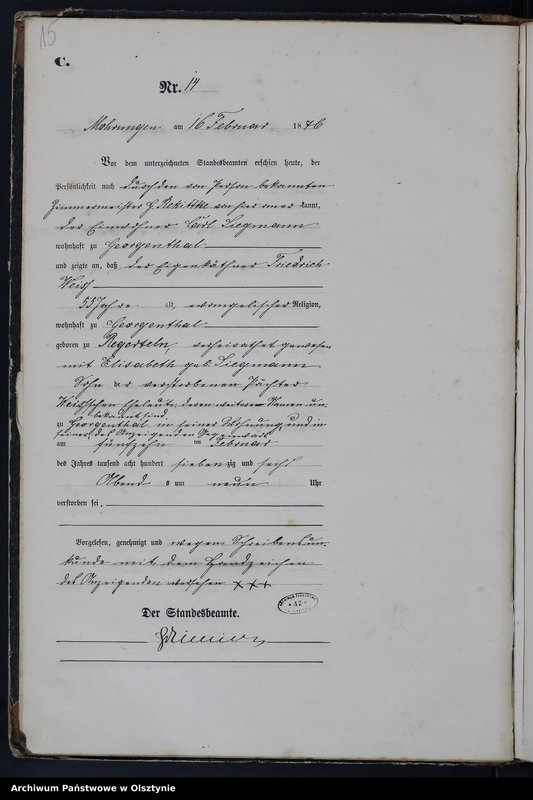 15
C.
Nr. 14
Mohrungen am 16 Februar 1876
Vor dem unterzeichneten Standesbeamten erschien heute, der
Persönlichkeit nach durch den von Person bekannten
Zimmermeister Rekittke kannt,
der Einwohner Carl Liegmann
wohnhaft zu Georgenthal
und zeigte an, daß der Eigenkäthner Friedrich
Weiß
55 Jahre alt, evangelischer Religion,
wohnhaft zu Georgenthal
geboren zu Regerteln, verheirathet gewesen
mit Elisabeth geb. Liegmann
Sohn der verstorbenen Pächter
Weißschen Eheleute, deren weitere Namen un-
bekannt sind.
zu Georgenthal in seiner Wohnung, und in
seiner, des Anzeigenden Gegenwart
am fünfzehn ten Februar
des Jahres tausend acht hundert siebenzig und sechs
Abends um neun Uhr
verstorben sei.
Vorgelesen, genehmigt und wegen Schreibensun-
kunde mit dem Handzeichen
des Anzeigenden versehen xxx
Der Standesbeamte.
42
Archiwum Państwowe w Olsztynie